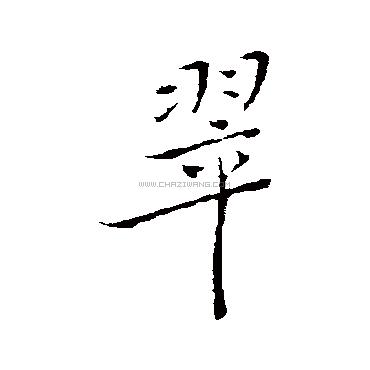 翠
WWW.CHAZIWANG.COM